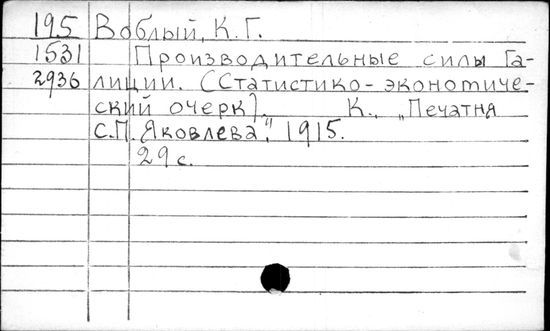 195 Воблый, К. Г.
1531 Производительные силы Га-
2936 лиции. (Статистико-экономиче-
ский очерк). К., „Печатня
С.П. Яковлева", 1915.
29 с.